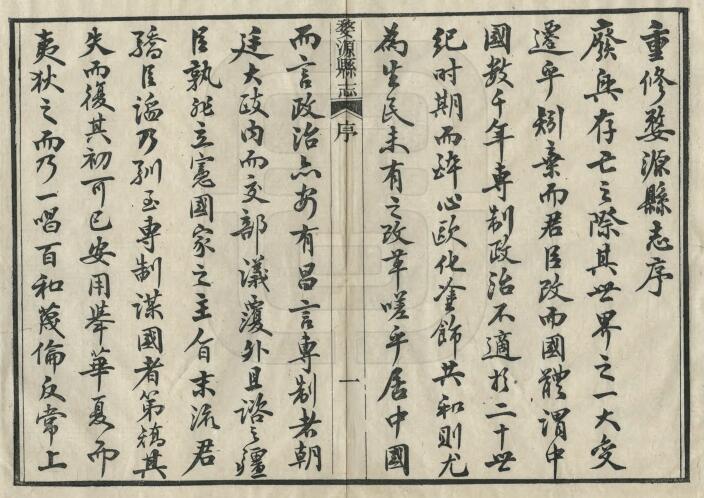 重修婺源縣志序
廢興存亡之際其世界之一大變
遷乎矧棄而君臣改而國體謂中
國數千年專制政治不適於二十世
紀时期而醉心歐化塗飾共和則尤
為生民未有之改革嗟乎居中國
婺源縣志
序
一
而言政治点安有昌言專制者朝
廷大政內而交部議覆外且諮之疆
臣孰非立憲國家之主旨末流君
驕臣諂乃馴至專制謀國者第矯其
失而復其初可已安用舉華夏而
夷狄之而乃一唱百和蔑倫反常上